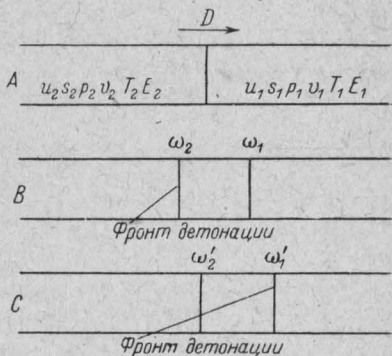 D
A
u₂ s₂ p₂ v₂ T₂ E₂
u₁ s₁ p₁ v₁ T₁ E₁
ω₂ ω₁
B
Фронт детонации
ω₂′ ω₁′
C
Фронт детонации